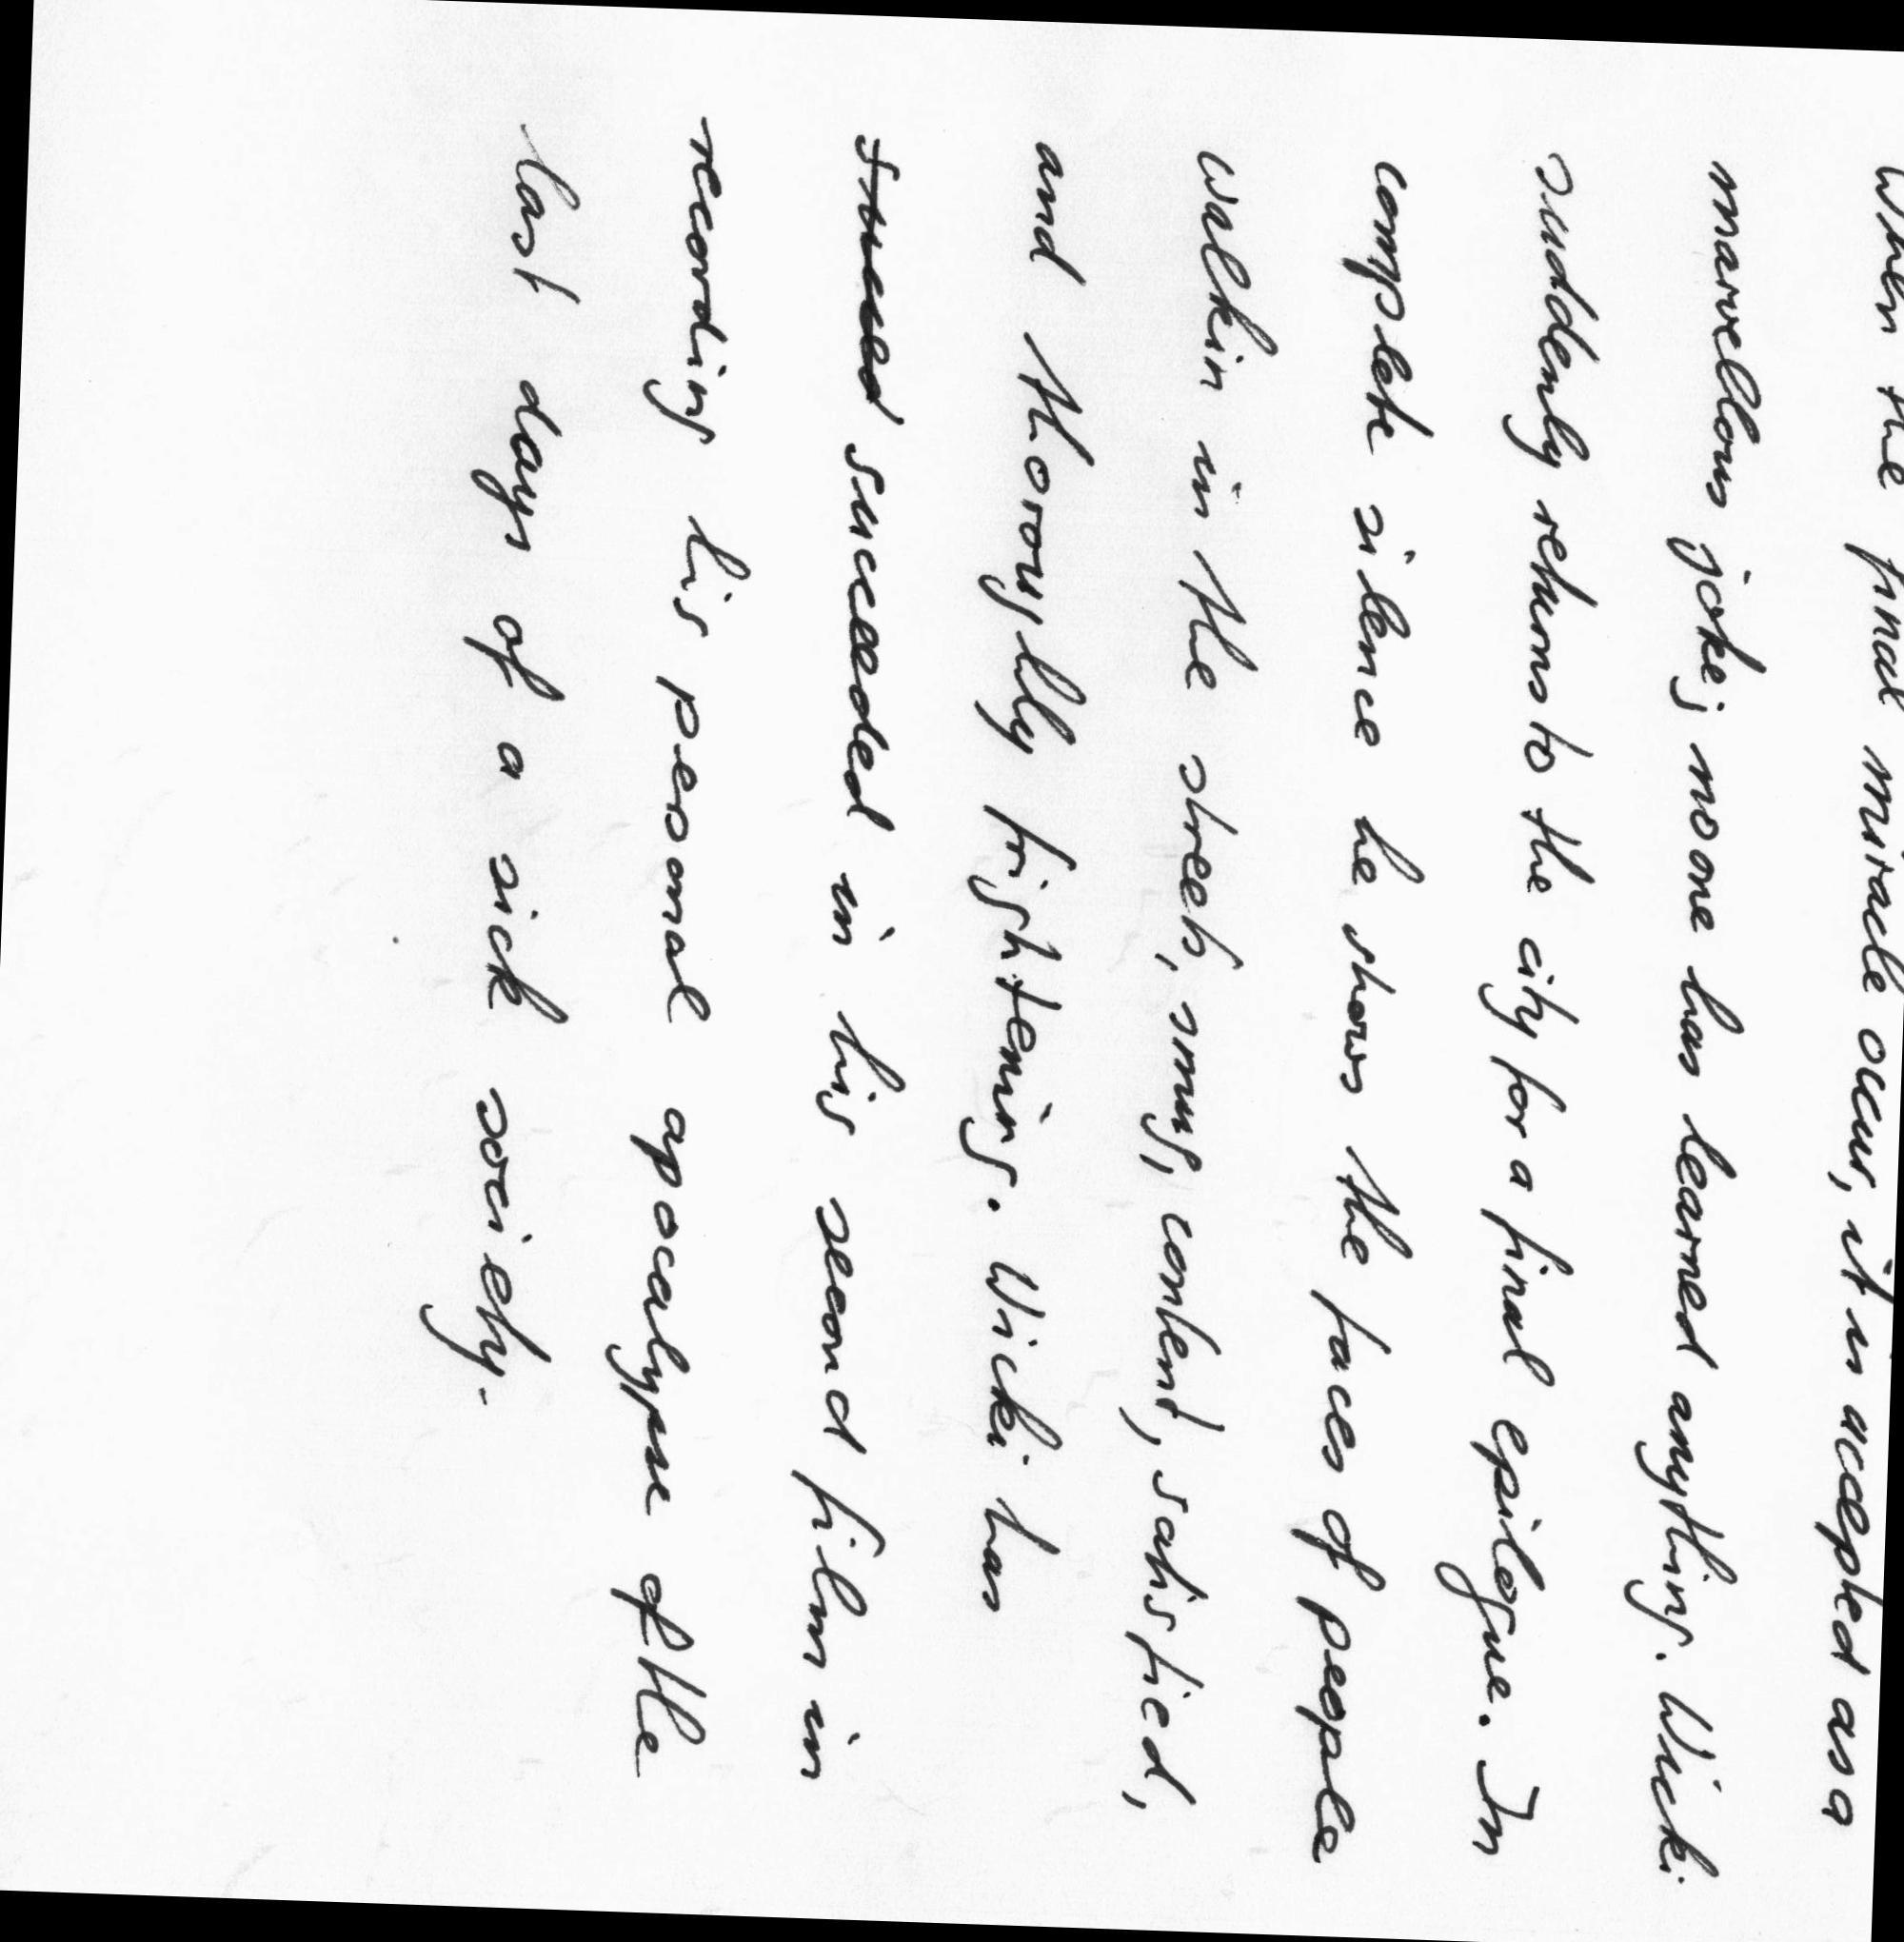 When the final miracle occurs, it is accepted as a
marvellous joke; no one has learned anything. Wicki
suddenly returns to the city for a final epilogue. In
complete silence he shows the faces of people
walkin in the streets, smug, content, satisfied,
and thoroughly frightening. Wicki has
succeeded in his second film in
recording his personal apocalypse of the
last days of a sick society.